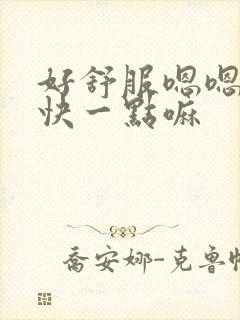 好舒服嗯嗯
快一點嘛
喬安娜-克魯